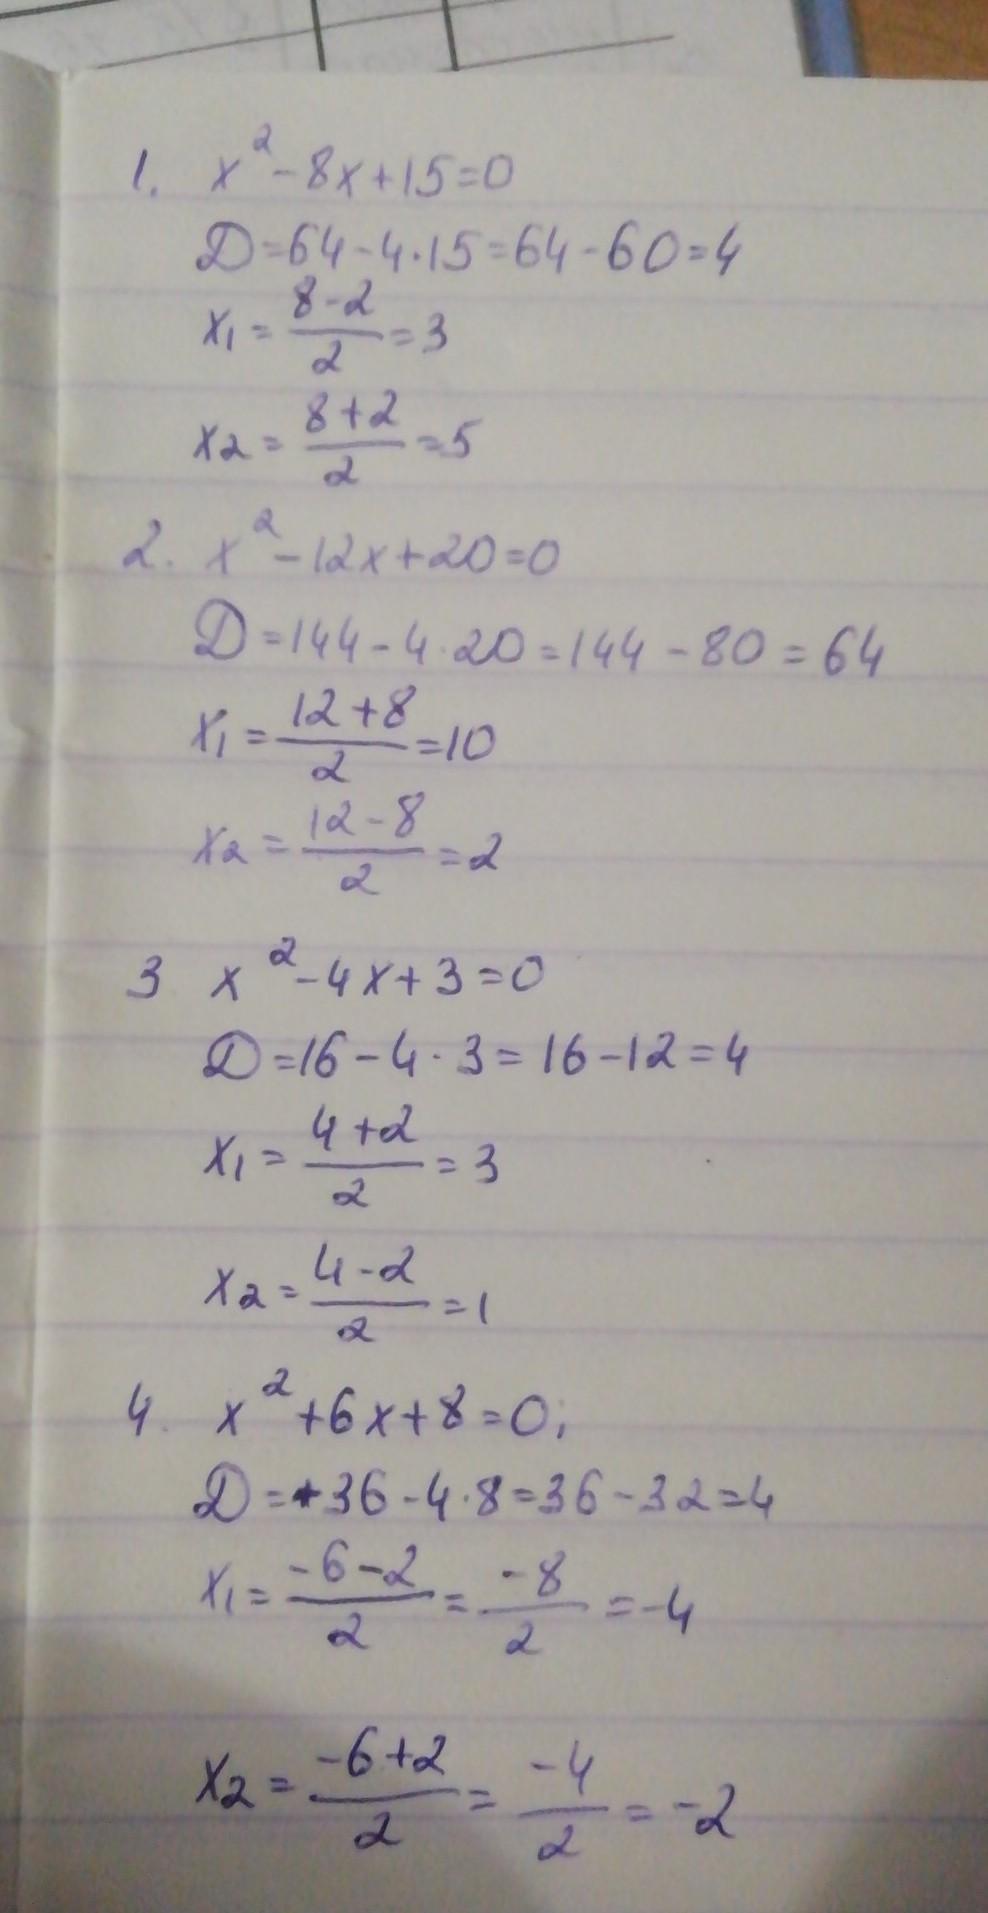 1. x² - 8x + 15 = 0
D = 64 - 4·15 = 64 - 60 = 4
x₁ = (8-2)/2 = 3
x₂ = (8+2)/2 = 5
2. x² - 12x + 20 = 0
D = 144 - 4·20 = 144 - 80 = 64
x₁ = (12+8)/2 = 10
x₂ = (12-8)/2 = 2
3 x² - 4x + 3 = 0
D = 16 - 4·3 = 16 - 12 = 4
x₁ = (4+2)/2 = 3
x₂ = (4-2)/2 = 1
4. x² + 6x + 8 = 0;
D = +36 - 4·8 = 36 - 32 = 4
x₁ = (-6-2)/2 = -8/2 = -4
x₂ = (-6+2)/2 = -4/2 = -2